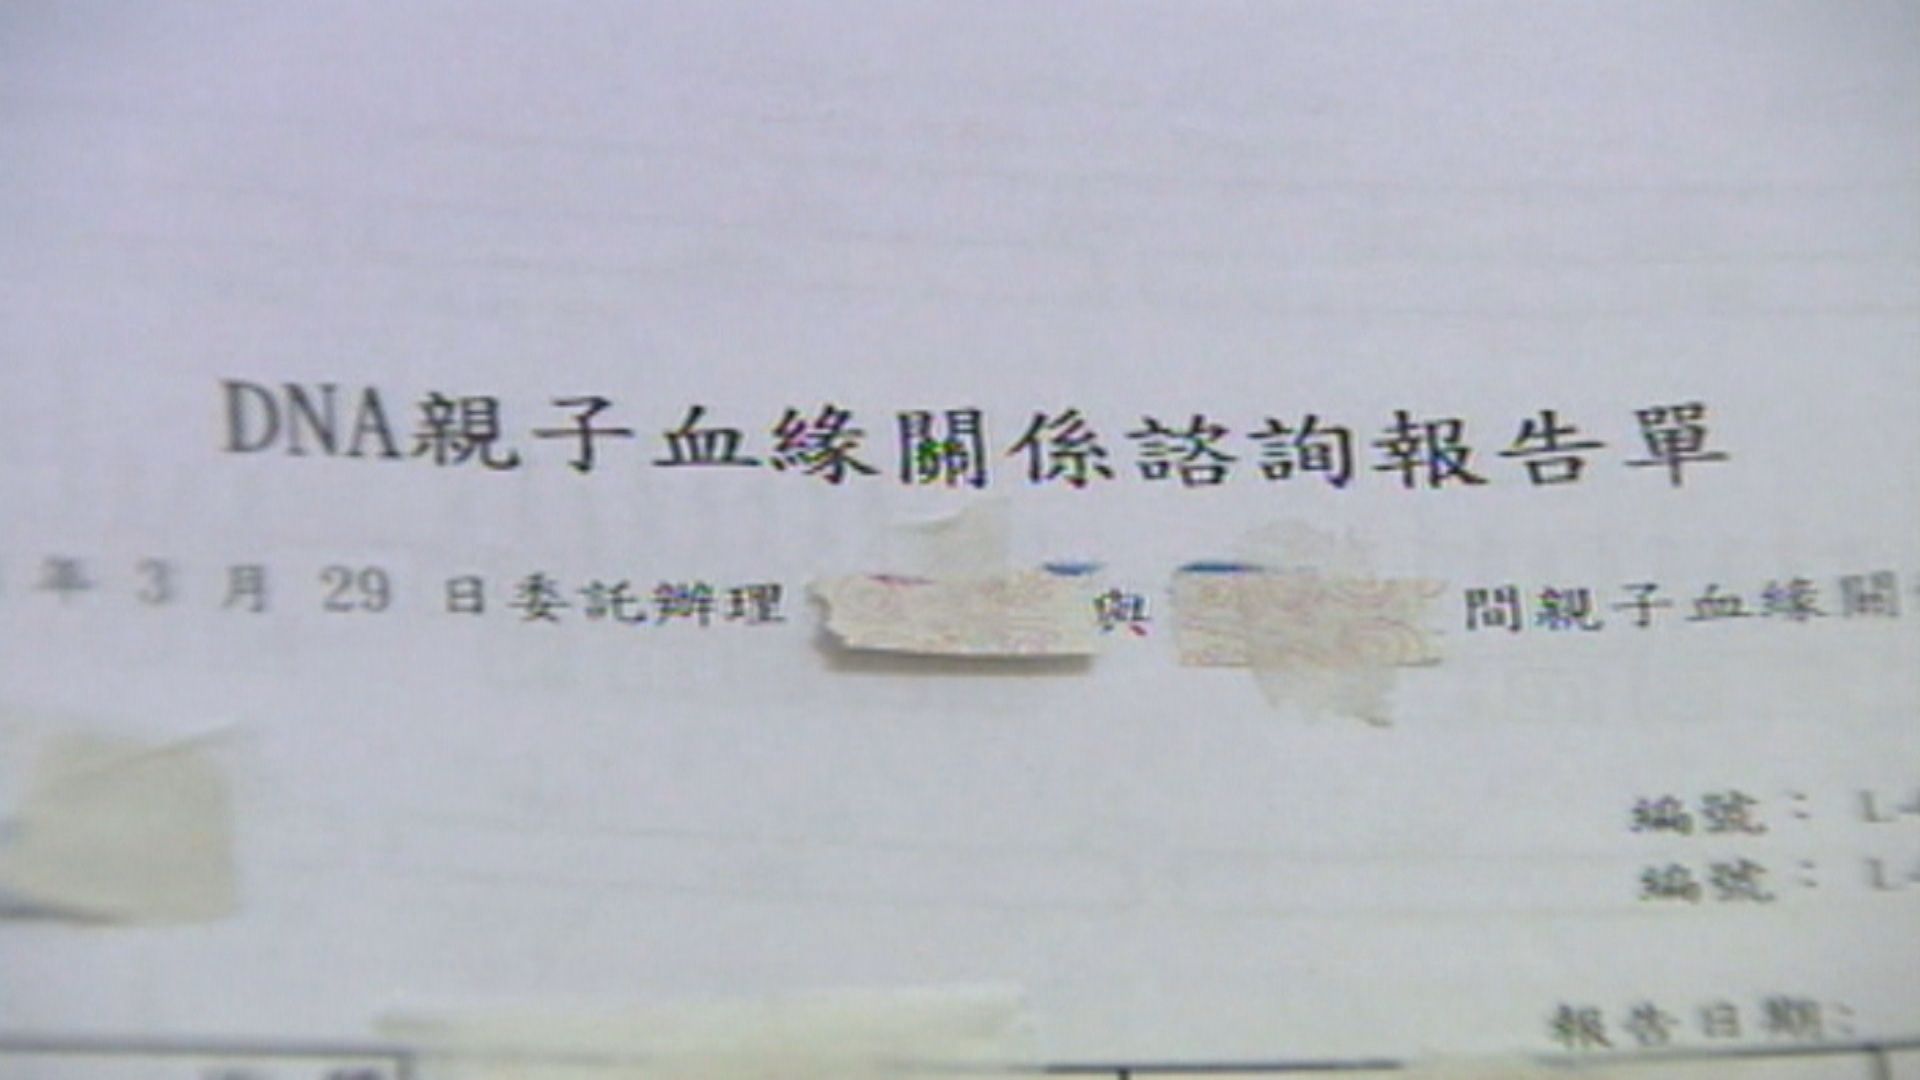 DNA親子血緣關係諮詢報告單
年 3 月 29 日委託辦理 與 間親子血緣關
編號： L4
編號： L4
報告日期: